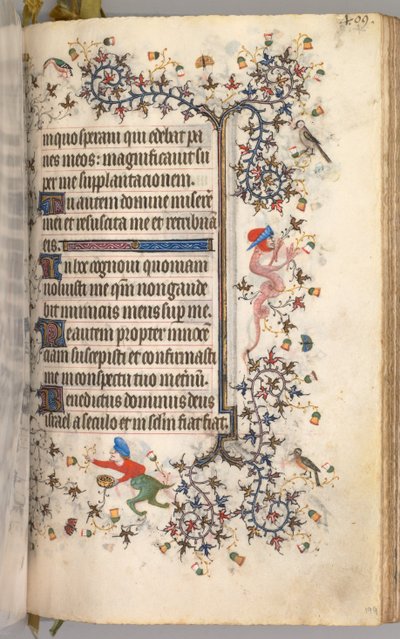 499.
in quo speraui qui edebat pa
nes meos: magnificauit su
per me supplantacionem.
Tu autem domine misere
mei et resuscita me et retribuā
eis.
In hoc cognoui quoniam
uoluisti me qm̄ non gaude
bit inimicus meus super me.
Me autem propter innocē
ciam suscepisti et confirmasti
me in conspectu tuo
Benedictus dominus deus
israel a seculo et in sc̄lm fiat fiat.
199